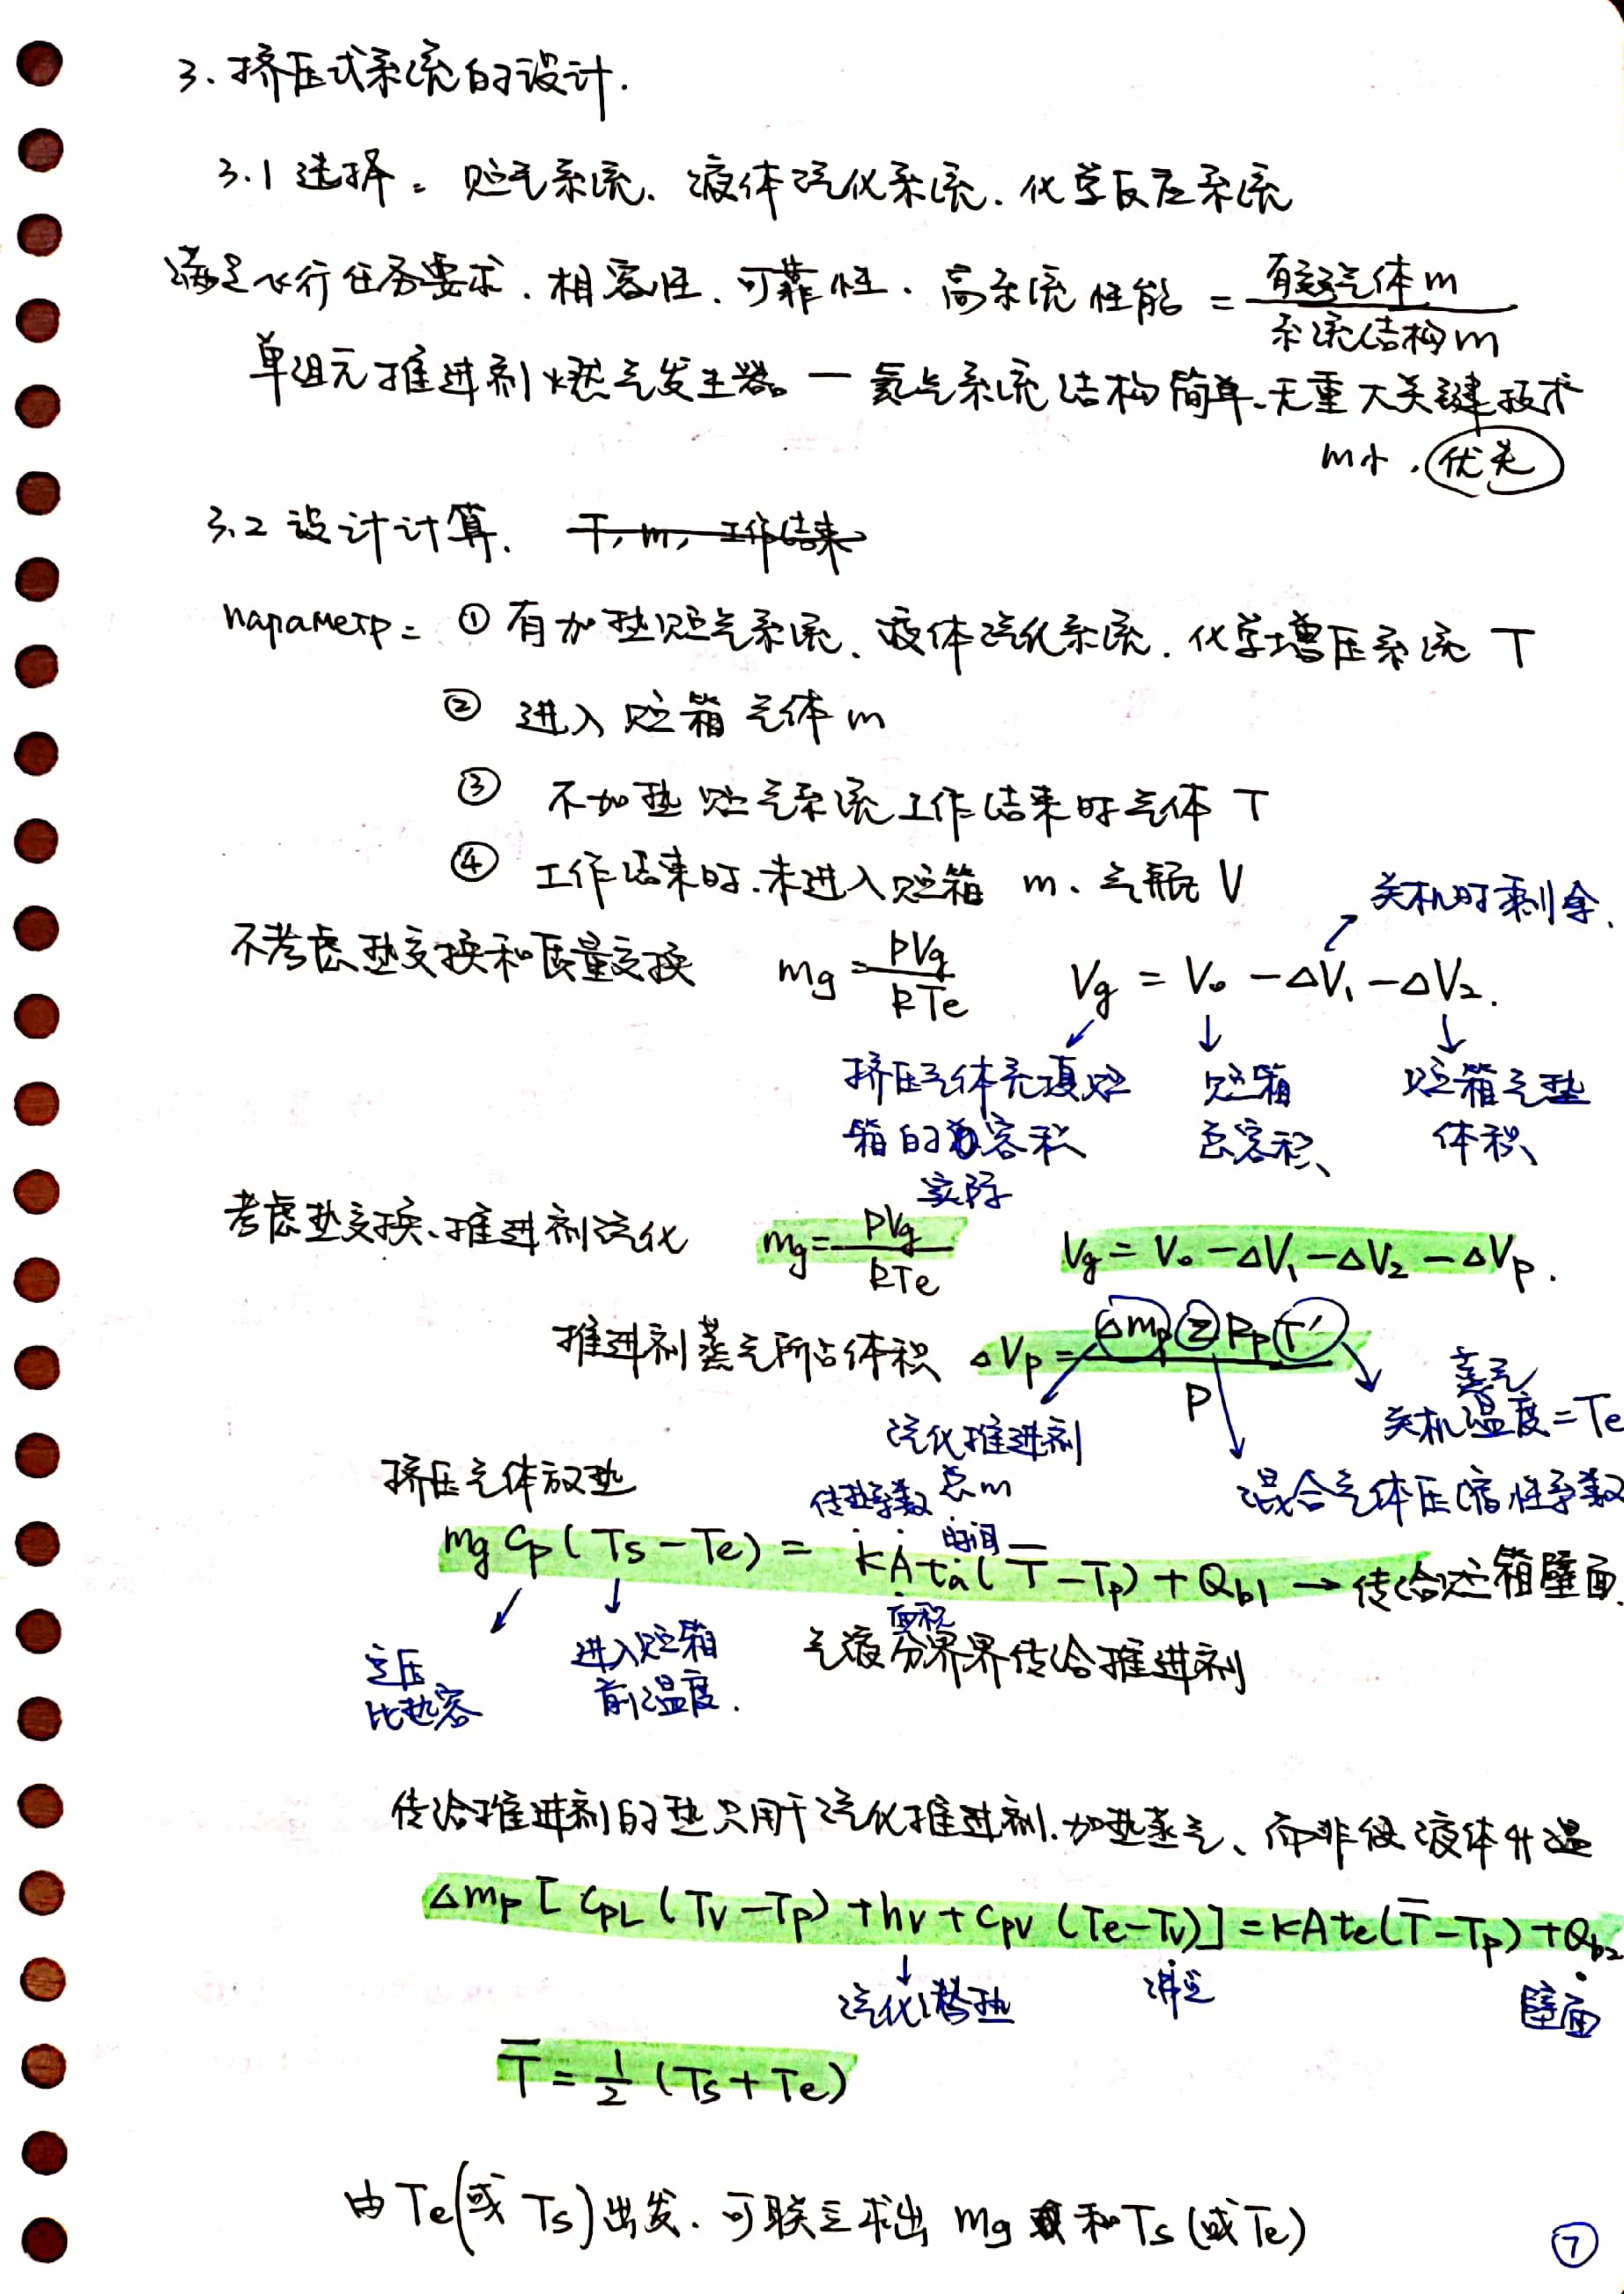 3. 挤压式系统的设计.
3.1 选择: 贮气系统. 液体汽化系统. 化学反应系统
满足飞行任务要求. 相容性. 可靠性. 高系统性能 = 有效气体m / 系统结构m
单组元推进剂燃气发生器 — 氦气系统结构简单. 无重大关键技术
m小. 优先
3.2 设计计算. T, m, 工作结束
параметр: ① 有加热贮气系统. 液体汽化系统. 化学增压系统 T
② 进入贮箱气体 m
③ 不加热贮气系统工作结束时气体 T
④ 工作结束时. 未进入贮箱 m. 气瓶 V
关机时剩余.
不考虑热交换和质量交换 mg = pVg / RTe Vg = V₀ - ΔV₁ - ΔV₂.
挤压气体充填贮 贮箱 贮箱气垫
箱的容积 总容积 体积
实际
考虑热交换. 推进剂汽化 mg = pVg / RTe Vg = V₀ - ΔV₁ - ΔV₂ - ΔVp.
推进剂蒸气所占体积 ΔVp = Δmp Z Rp T' / P
蒸气
关机温度 = Te
汽化推进剂
总m
混合气体压缩性系数
挤压气体放热
传热系数 时间
mg Cp (Ts - Te) = kA ta (T̄ - Tp) + Qb1 → 传给贮箱壁面.
面积
定压 进入贮箱 气液分界界传给推进剂
比热容 前温度.
传给推进剂的热只用于汽化推进剂. 加热蒸气、而非使液体升温
Δmp [ CpL (Tv - Tp) + hv + Cpv (Te - Tv) ] = kAte (T̄ - Tp) + Qb2
汽化潜热 沸点 壁面
T̄ = 1/2 (Ts + Te)
由 Te (或 Ts) 出发. 可联立求出 mg 和 Ts (或 Te)
⑦